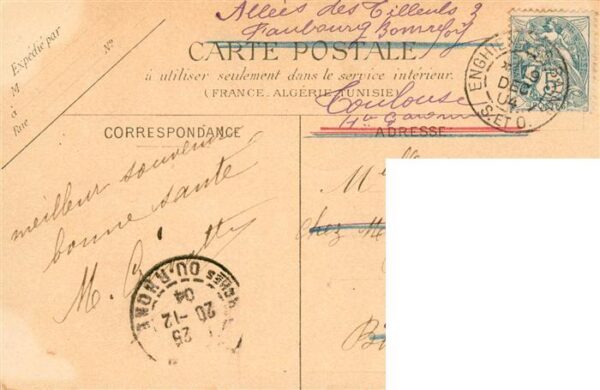 Allées des Tilleuls 2
Faubourg Bonnefoy
Expédié par
M
à
Rue
N°
CARTE POSTALE
à utiliser seulement dans le service intérieur.
(FRANCE, ALGÉRIE, TUNISIE)
Toulouse
Hte Garonne
ENGHIEN
19
DEC
04
(S.ET O.)
CORRESPONDANCE
ADRESSE
meilleur souvenir
bonne santé
M.
DU-RHONE
25
20-12
04
Mlle
chez M